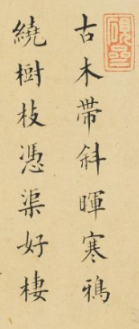 古木帯斜暉寒鴉
繞樹枝憑渠好棲